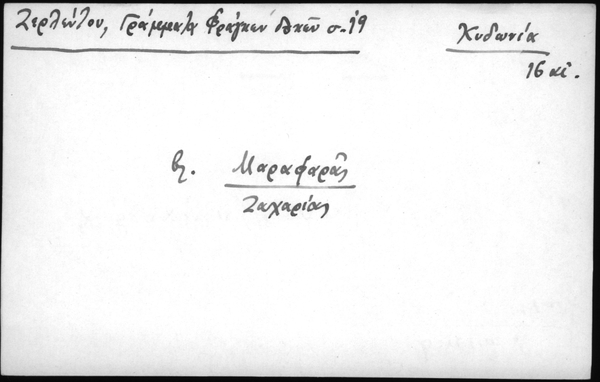 Ζερλέντου, Γράμματα Φράγκων δουκῶν σ. 19
Κυδωνία
16 αἰ.
βλ. Μαραφαρᾶς
Ζαχαρίας